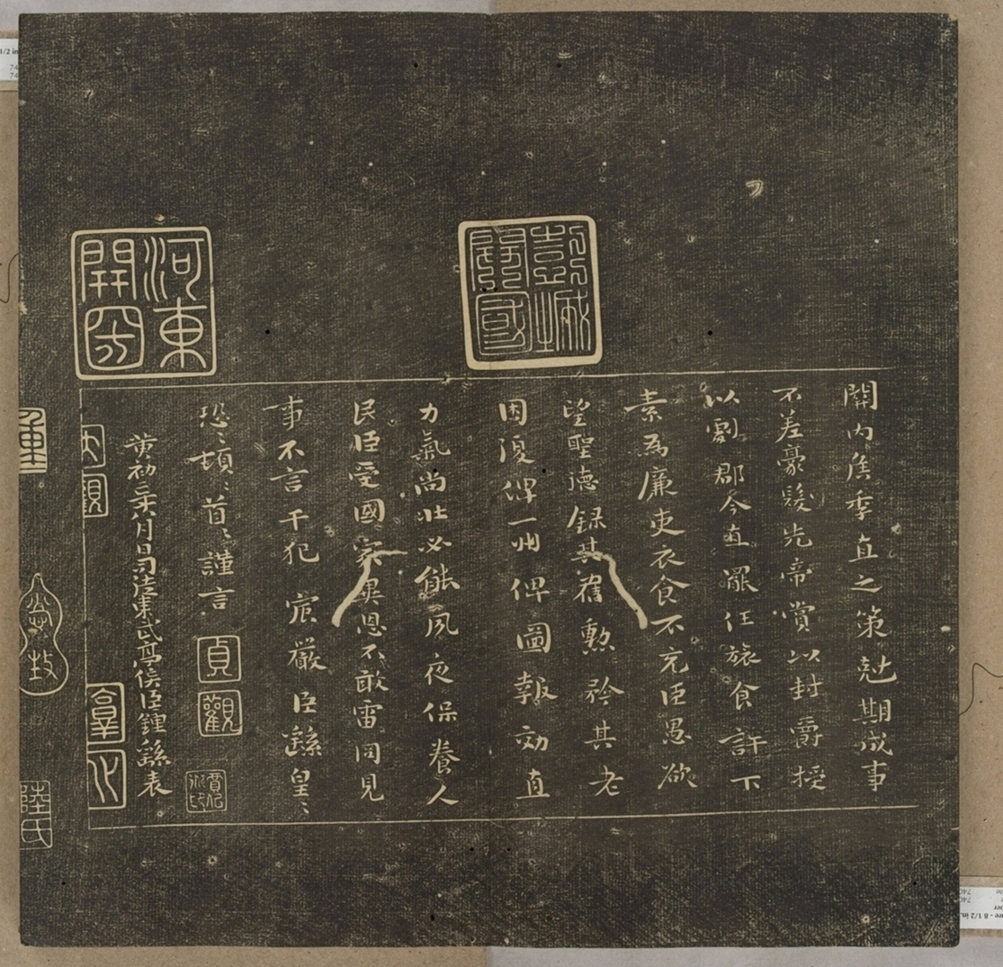 彭城開國
關內侯季直之策尅期成事
不差豪髮先帝賞以封爵授
以劇郡今直罷任旅食許下
素為廉吏衣食不充臣愚欲
望聖德録其舊勲矜其老
困復俾一州俾圖報効直
力氣尚壯必能夙夜保養人
民臣受國家異恩不敢雷同見
事不言干犯宸嚴臣繇皇〻
恐〻頓〻首〻謹言
貞觀
河東開國
黄初二年八月日司徒東武亭侯臣鍾繇表
陸氏